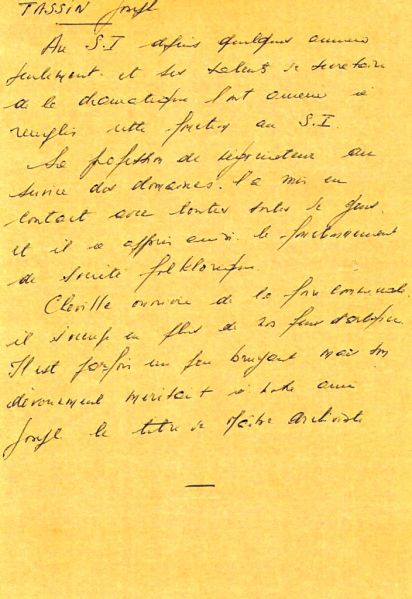 TASSIN Joseph
Au S.I depuis quelques années
seulement et ses talents de secrétaire
de la dramatique l'ont amené à
remplir cette fonction au S.I.
Sa profession de au
service des domaines. l'a mis en
contact avec toutes sortes de gens
et il a appris aussi le fonctionnement
de société folklorique.
Cheville ouvrière de la foire commerciale
il s'occupe en plus de nos
Il est parfois un peu bruyant mais son
dévouement méritait à notre ami
Joseph le titre de Maître Archiviste